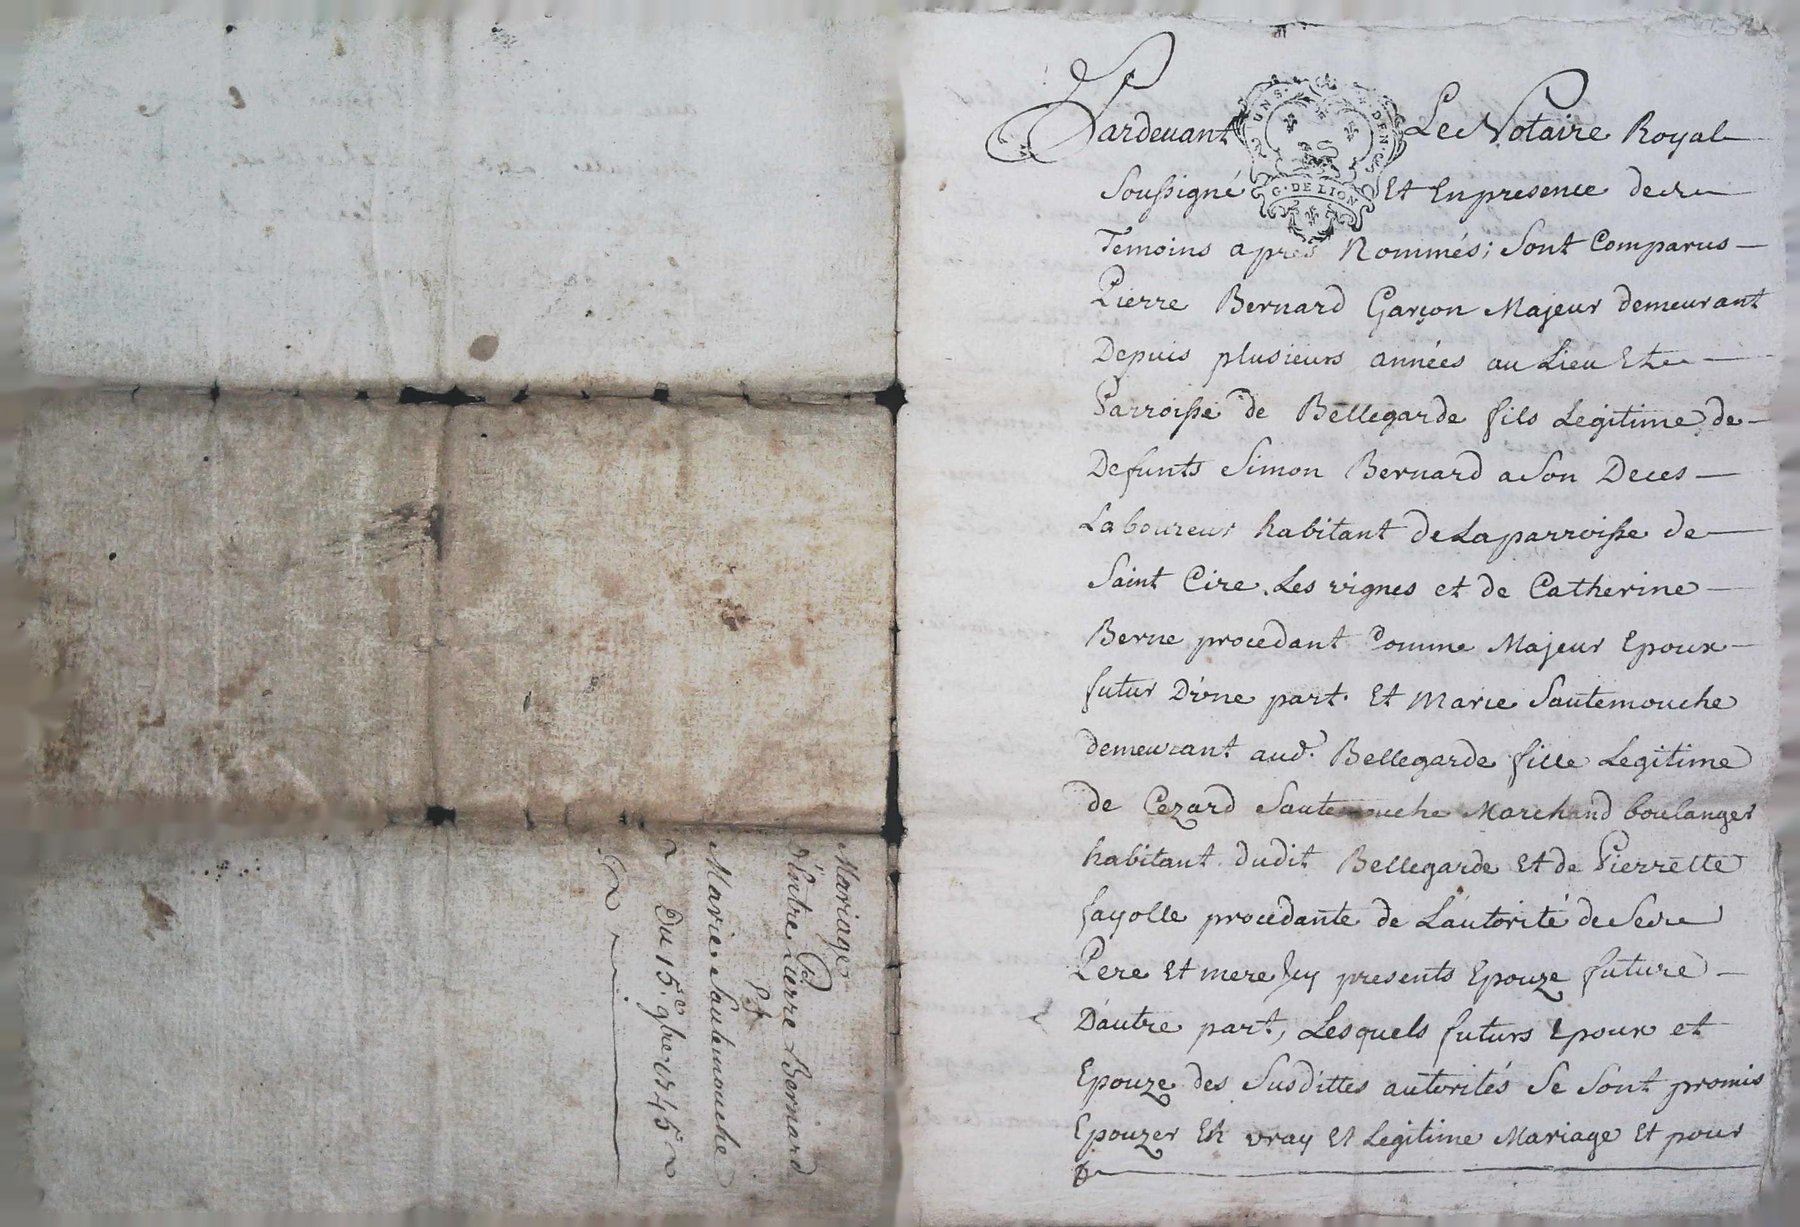 Mariage
D'Entre Pierre Bernard
Et
Marie Sautemouche
Du 15e 9bre 1745
Pardevant Le Notaire Royal
UN S. DEN.
G. DE LION
Soussigné Et En presence de
Temoins apres Nommés; Sont Comparus
Pierre Bernard Garçon Majeur demeurant
Depuis plusieurs années au Lieu Et
Parroisse de Bellegarde fils Legitime de
Defunts Simon Bernard a Son Deces
Laboureur habitant de Laparroisse de
Saint Cire Les vignes et de Catherine
Berne procedant Comme Majeur Epoux
futur D'une part. Et Marie Sautemouche
demeurant aud. Bellegarde fille Legitime
de Cezard Sautemouche Marchand boulanger
habitant dudit Bellegarde Et de Pierrette
fayolle procedante de L'autorité de Ses
Pere Et mere Icy presents Epouze future
D'autre part, Lesquels futurs Epoux et
Epouze des Susdittes autorités Se Sont promis
Epouzer En vray Et Legitime Mariage Et pour